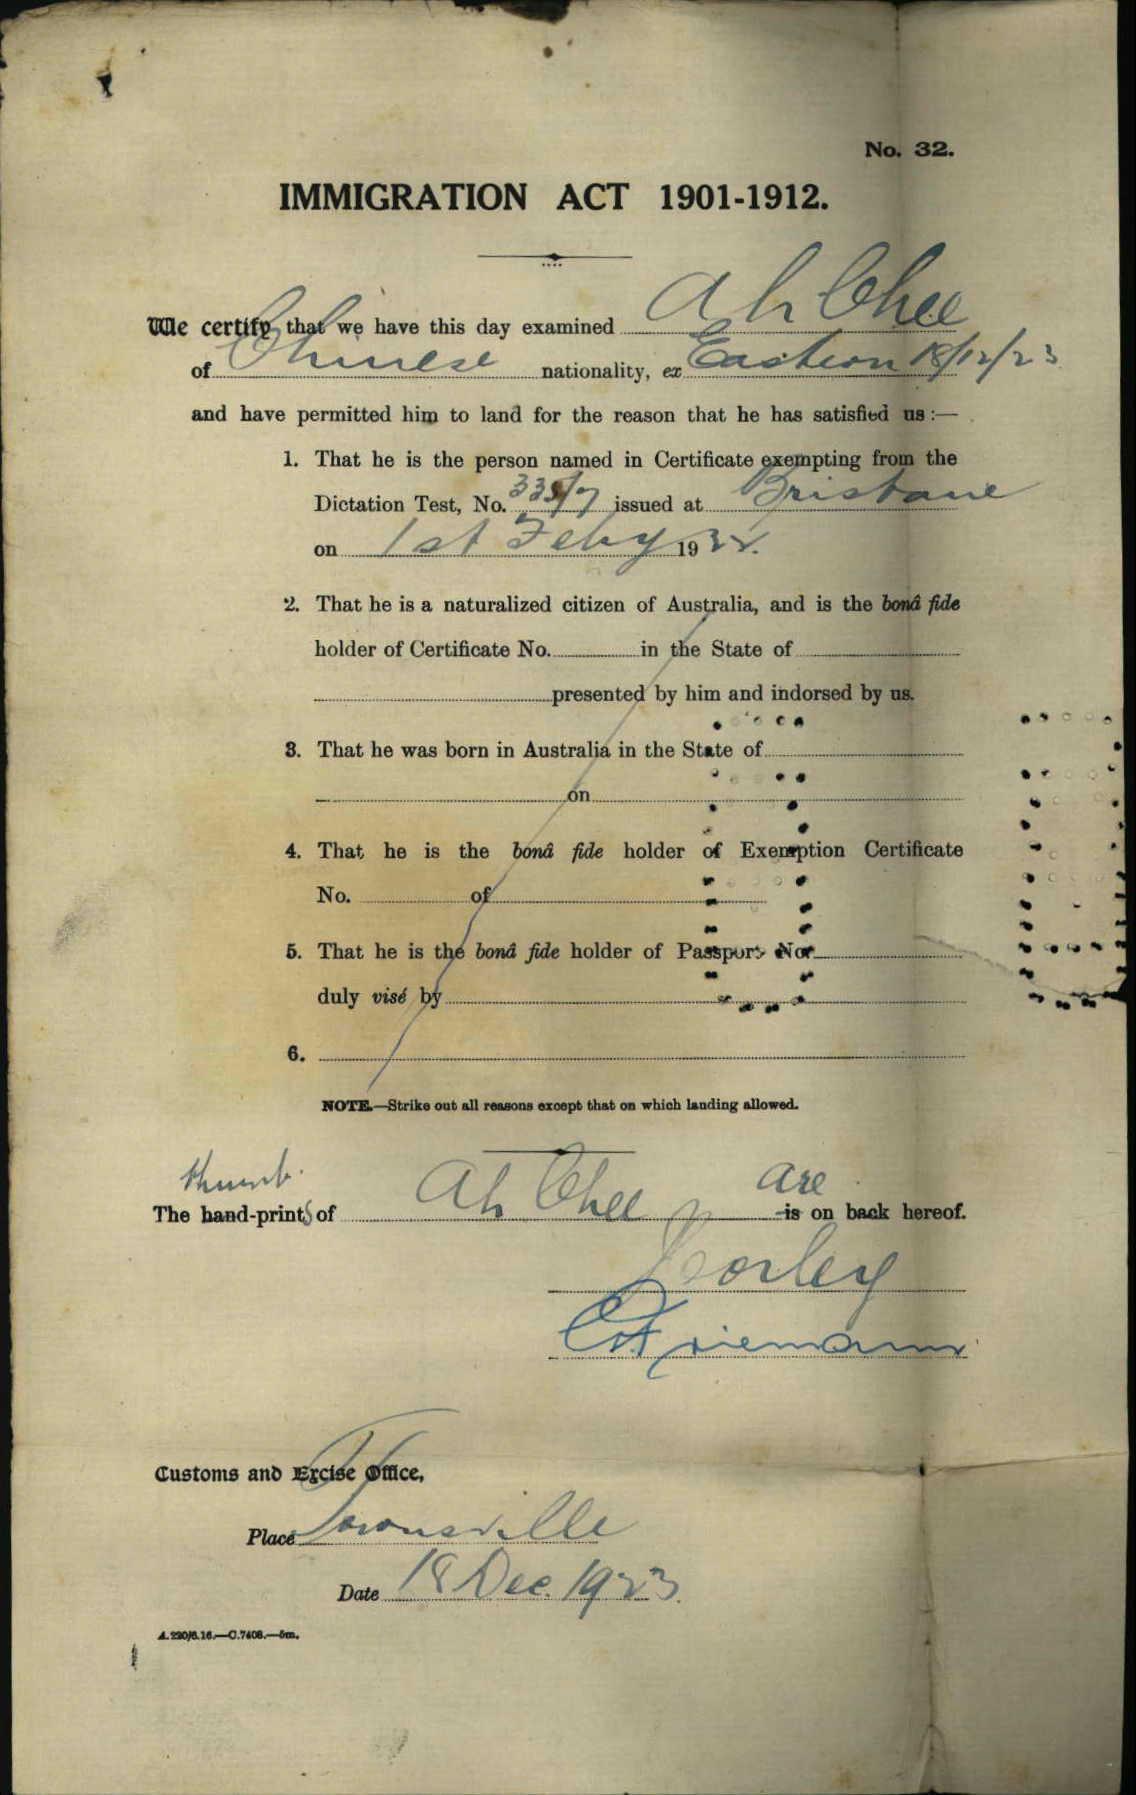 No. 32.
IMMIGRATION ACT 1901-1912.
We certify that we have this day examined Ah Chee
of Chinese nationality, ex Eastern 18/12/23
and have permitted him to land for the reason that he has satisfied us :—
1. That he is the person named in Certificate exempting from the
Dictation Test, No. 335/7 issued at Brisbane
on 1st Feby 1922.
2. That he is a naturalized citizen of Australia, and is the bonâ fide
holder of Certificate No. in the State of
presented by him and indorsed by us.
3. That he was born in Australia in the State of
on
4. That he is the bonâ fide holder of Exemption Certificate
No. of
5. That he is the bonâ fide holder of Passport No.
duly visé by
6.
NOTE.—Strike out all reasons except that on which landing allowed.
thumb are
The hand-prints of Ah Chee is on back hereof.
Corley
Customs and Excise Office,
Place Townsville
Date 18 Dec. 1923.
A.220/6.16.—C.7408.—5m.